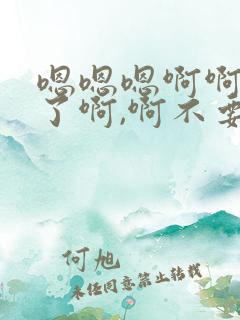 嗯嗯嗯啊啊
了啊,啊不要
何旭
未经同意禁止转载